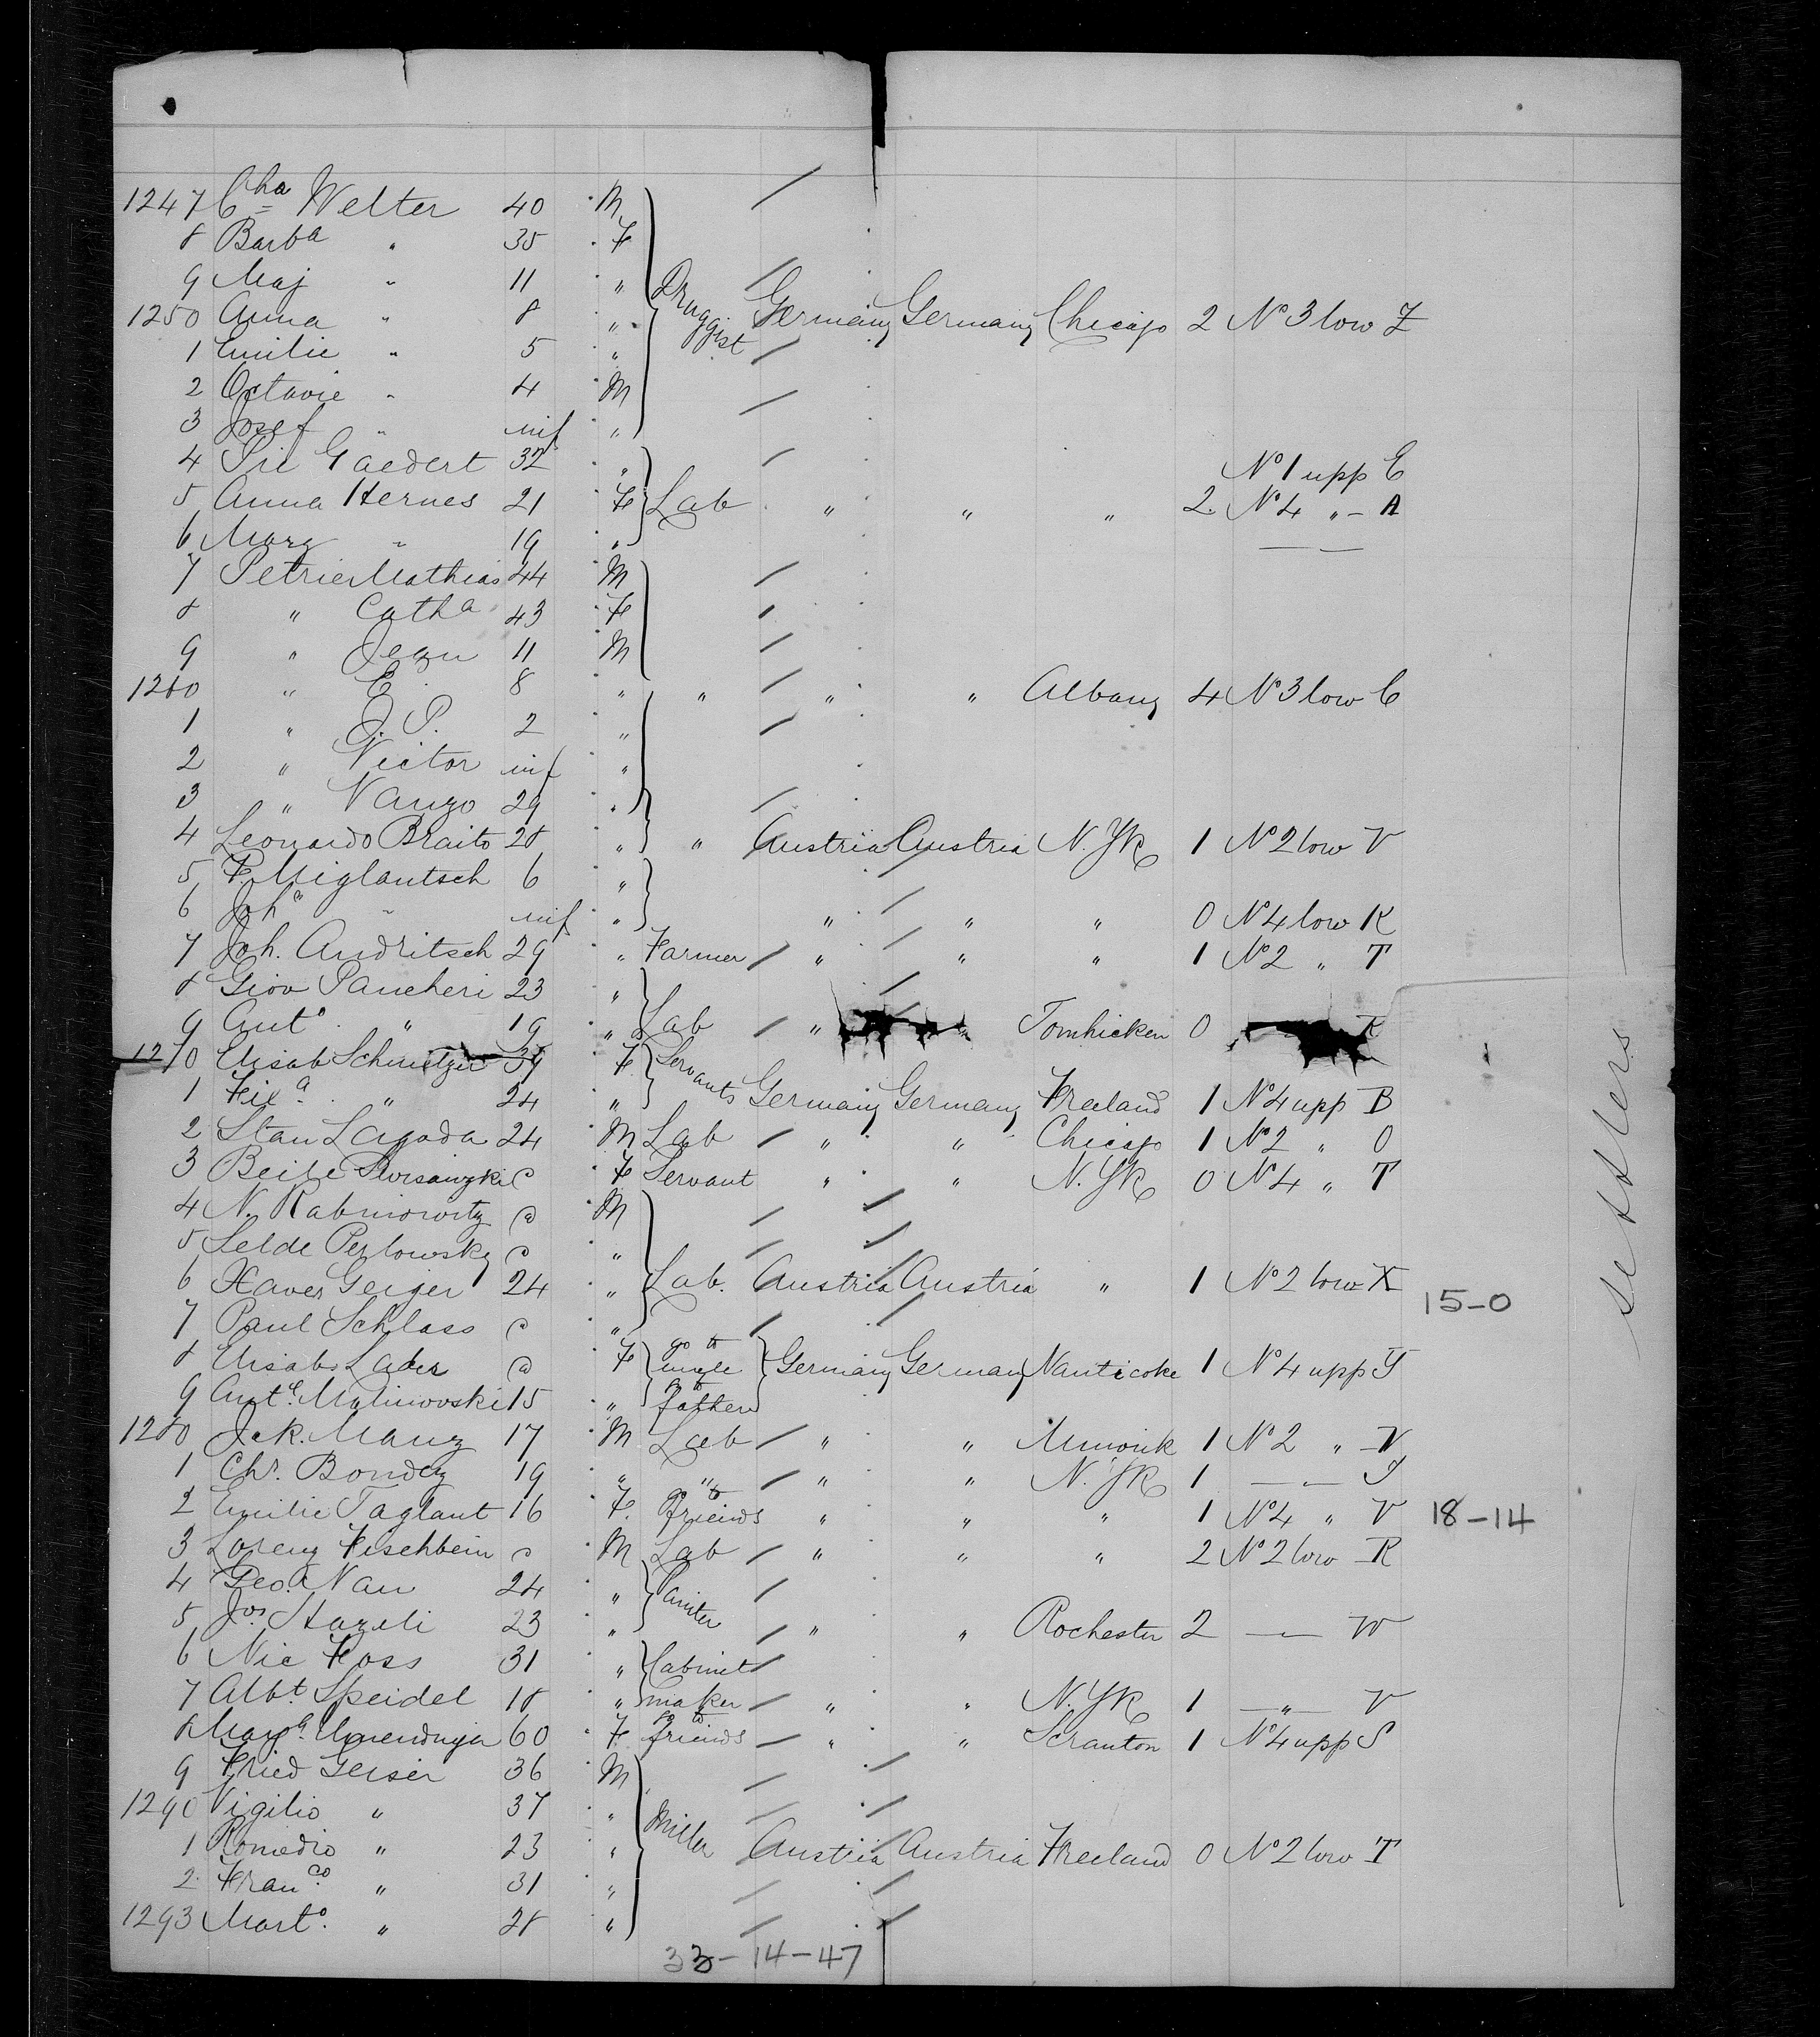 1247 Cha Welter 40 M
8 Barba " 35 F
9 Maj " 11 "
1250 Anna " 8 " Druggist Germany Germany Chicago 2 No 3 low Z
1 Emilie " 5 "
2 Octavie " 4 M
3 Josef " inf "
4 Gaedert 32 " No 1 upp E
5 Anna Hernes 21 F Lab " " " 2. No 4 " – A
6 Marg " 19 "
7 Petrie Mathias 44 M
8 " Catha 43 F
9 " Jean 11 M
1260 " E. 8 " " " " Albany 4 No 3 low C
1 " J. P. 2 "
2 " Victor inf "
3 " Vanzo 29 "
4 Leonardo Braito 28 " " Austria Austria N. Yk 1 No 2 low V
5 F. Miglautsch 6 "
6 Joha " inf " " " " 0 No 4 low K
7 Joh. Andritsch 29 " Farmer " " " 1 No 2 " T
8 Giov Pancheri 23 "
9 Anto. " 19 " Lab " " Tomhicken 0 K
1270 Elisab 39 F Servants
1 " 24 " Germany Germany Freeland 1 No 4 upp B
2 Stan Lagoda 24 M Lab " " Chicago 1 No 2 " O
3 Beile F Servant " " N. Yk 0 No 4 " T
4 N. Rabinowitz M
5 Selde Perlowsky "
6 Xaver Geiger 24 " Lab. Austria Austria " 1 No 2 low X
15–0
7 Paul Schlass "
8 Elisab. Lader F go to uncle Germany Germany Nanticoke 1 No 4 upp T
9 Ante. Malinovski 15 " go to father
1280 Jak. Manz 17 M Lab " " 1 No 2 " V
1 Chr. Bondez 19 " " " " N. Yk 1 — " —
2 Emilie Taglant 16 F. go to friends " " " 1 No 4 " V 18–14
3 Lorenz Fischbein M Lab " " " 2 No 2 low R
4 Geo. Nau 24 " Painter
5 Jos. Hazeli 23 " " " Rochester 2 — " — W
6 Nic Foss 31 " Cabinet
7 Albt. Speidel 18 " maker " " N. Yk 1 — " — V
8 Marga. 60 F go to friends " " Scranton 1 No 4 upp S
9 Fried Geiser 36 M
1290 Vigilio " 37 "
1 Romedio " 23 " Miller Austria Austria Freeland 0 No 2 low T
2. Franco. " 31 "
1293 Marto. " 28 "
33–14–47
settlers